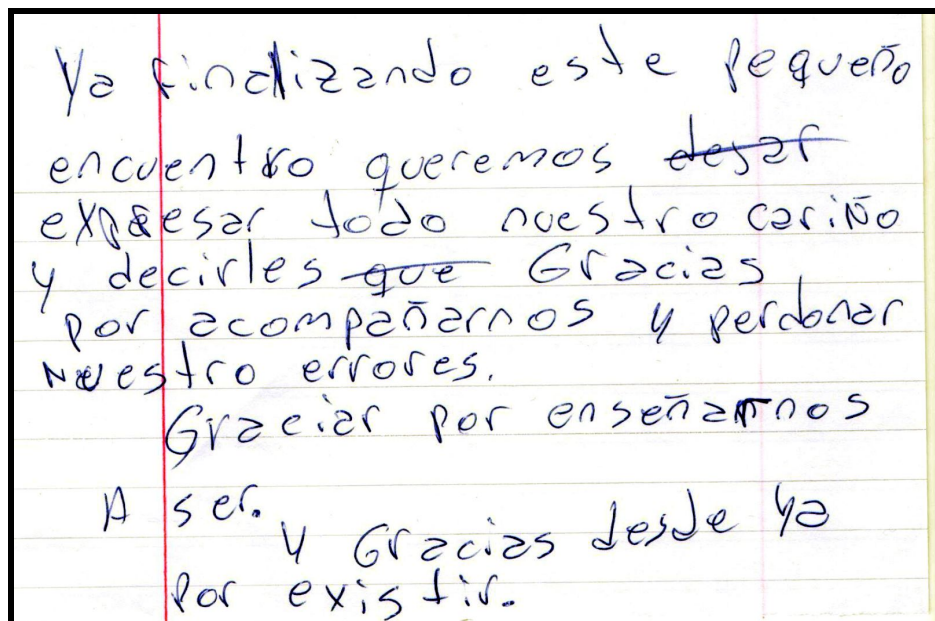 Ya finalizando este pequeño
encuentro queremos
expresar todo nuestro cariño
y decirles Gracias
por acompañarnos y perdonar
Nuestro errores.
Graciar por enseñarnos
A ser.
Y Gracias desde ya
por existir.